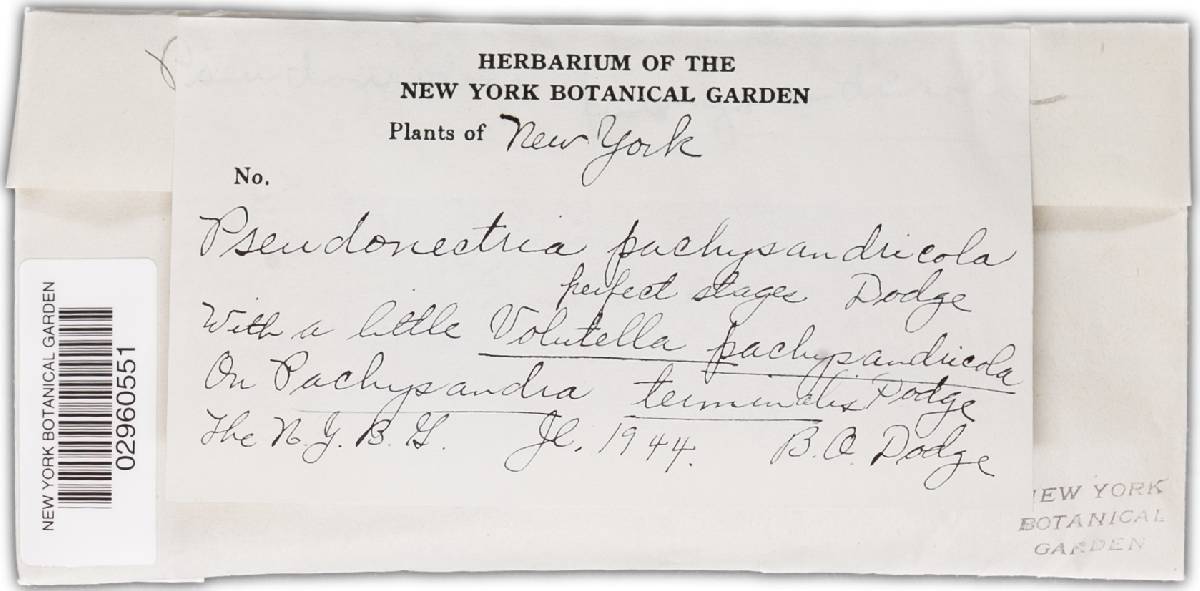 HERBARIUM OF THE
NEW YORK BOTANICAL GARDEN
Plants of New York
No.
Pseudonectria pachysandricola
perfect stages Dodge
With a little Volutella pachysandricola
On Pachysandra terminalis Dodge
The N.Y.B.G. Jl. 1944. B.O. Dodge
NEW YORK BOTANICAL GARDEN
02960551
NEW YORK
BOTANICAL
GARDEN